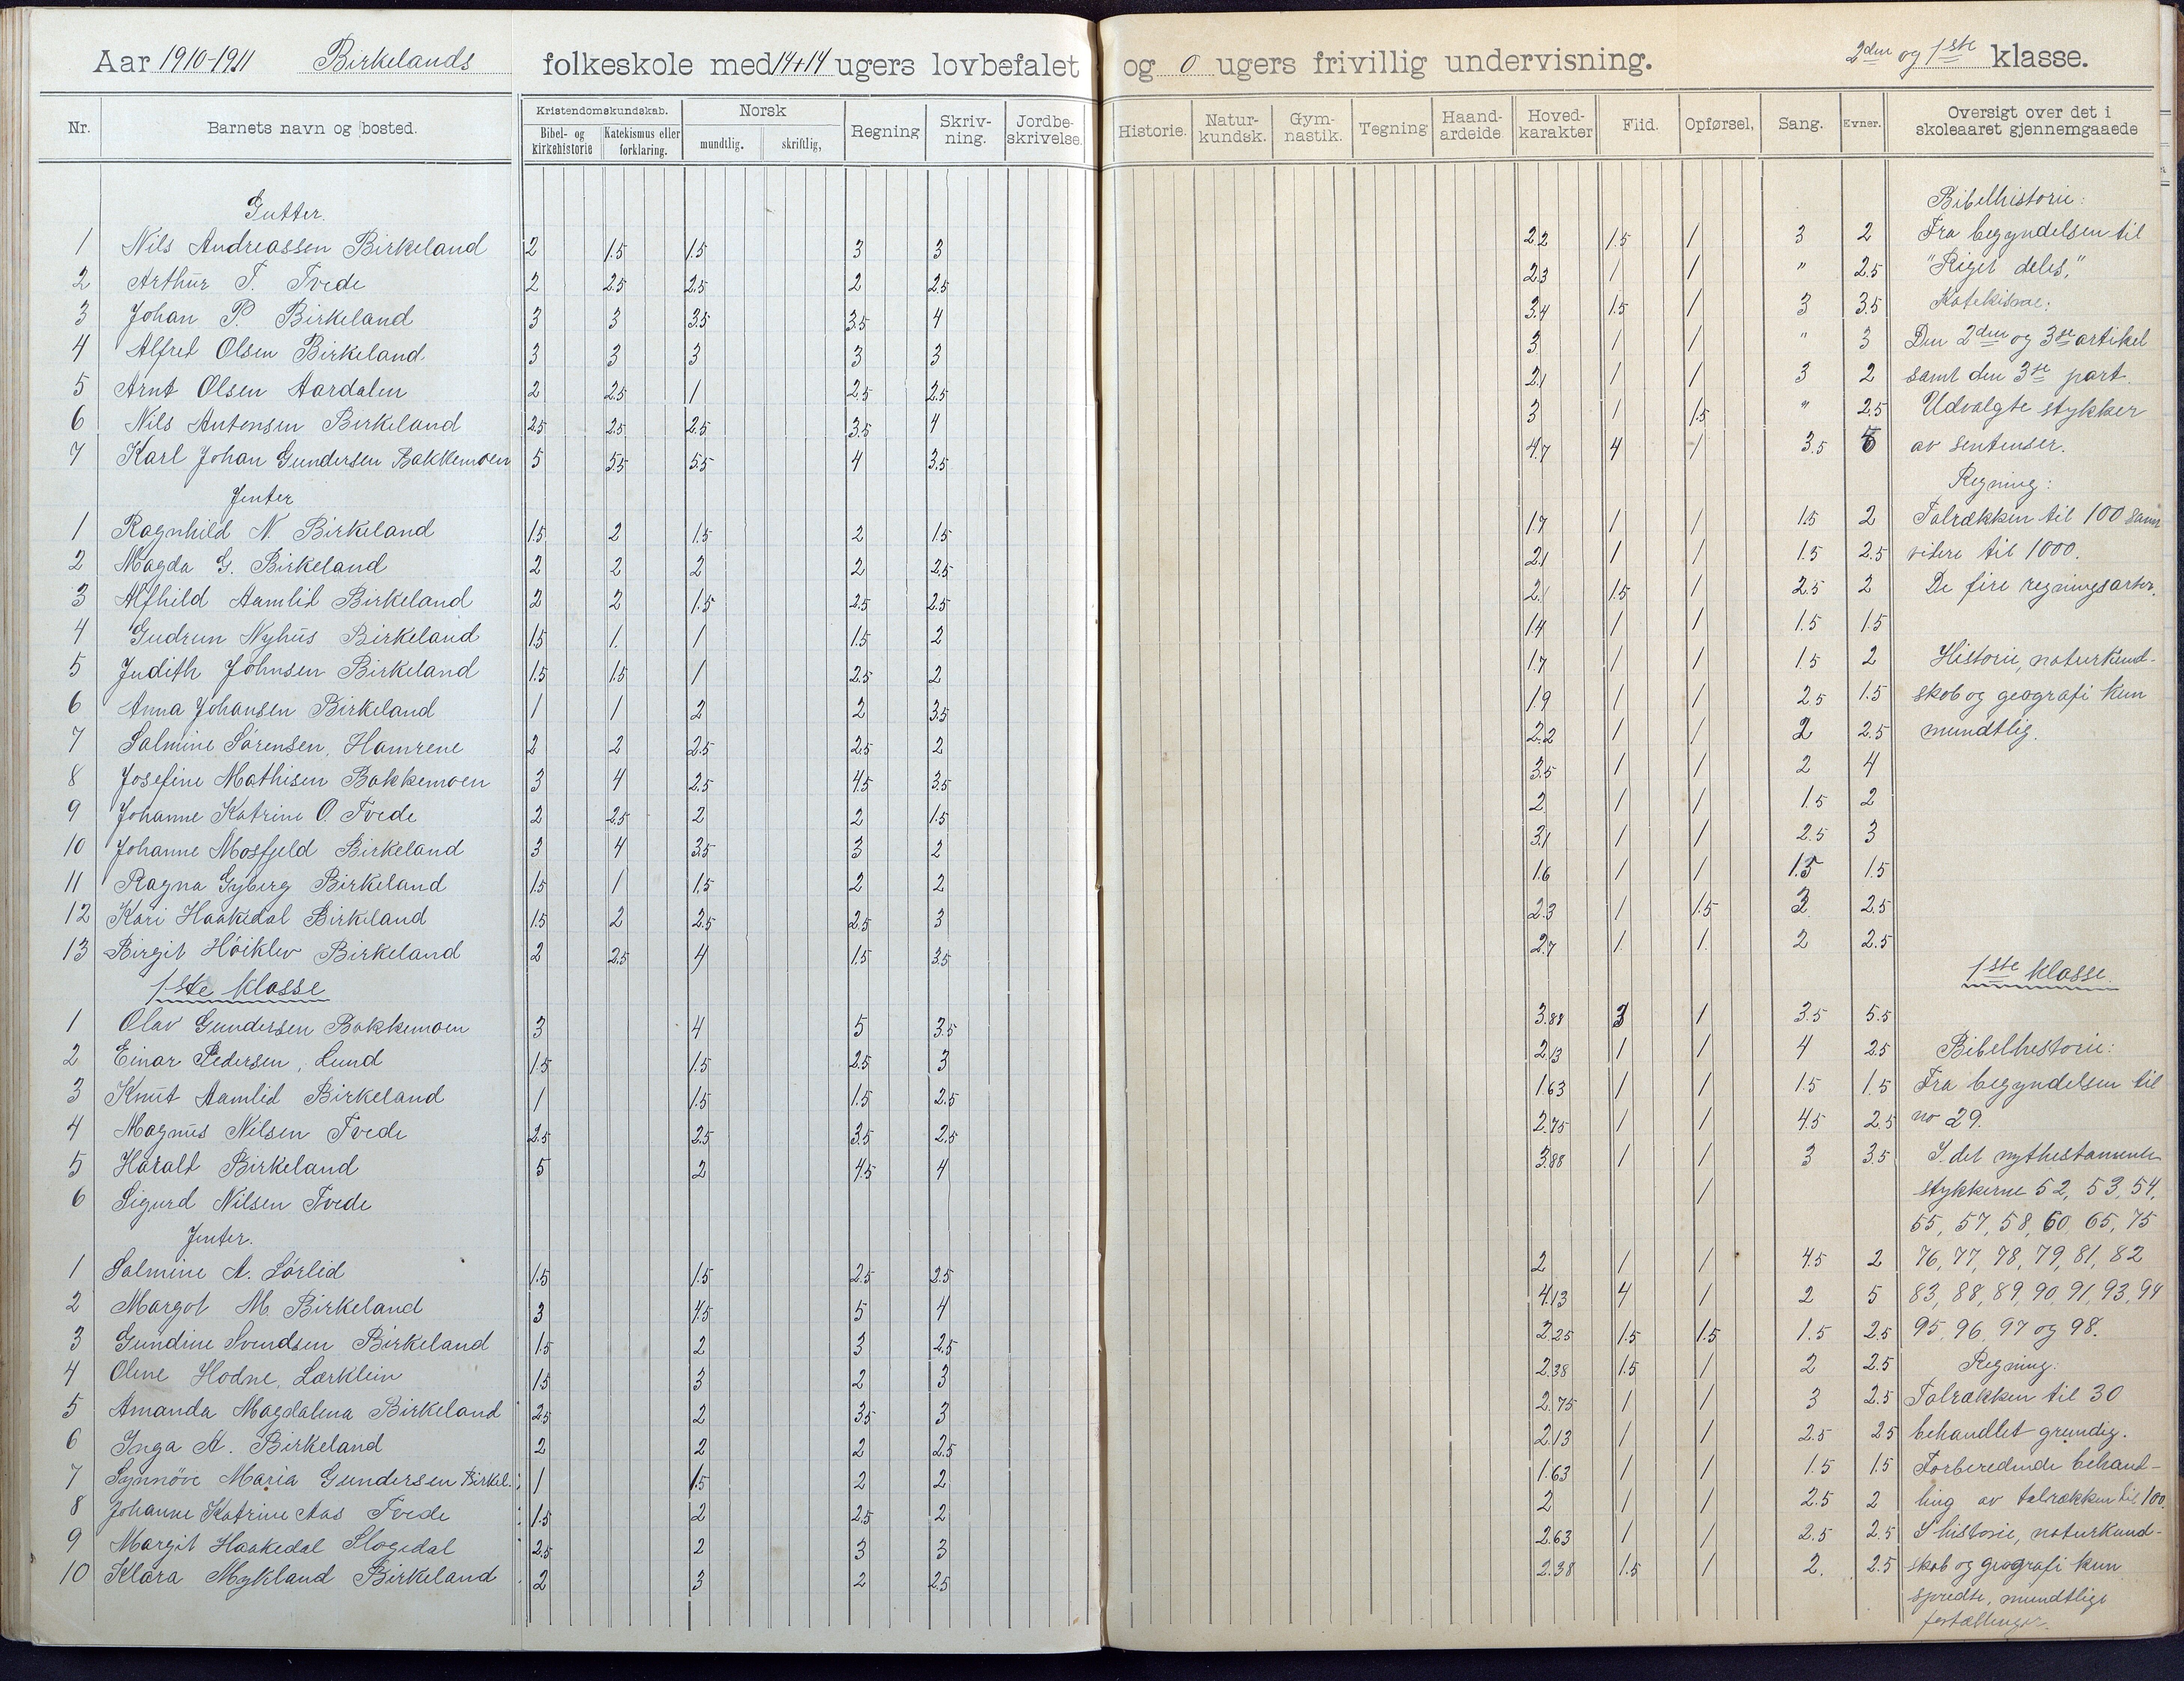 Aar 1910-1911 Birkelands folkeskole med 14+14 ugers lovbefalet og 0 ugers frivillig undervisning. 2den og 1ste klasse.
Nr. Barnets navn og bosted. Kristendomskundskab. Bibel- og kirkehistorie Katekismus eller forklaring. Norsk mundtlig. skriftlig, Regning Skriv-ning. Jordbe-skrivelse. Historie. Natur-kundsk. Gym-nastik. Tegning Haand-arbeide Hoved-karakter Flid. Opførsel, Sang. Evner. Oversigt over det i skoleaaret gjennemgaaede
Gutter. Bibelhistorie:
1 Nils Andreassen Birkeland 2 1.5 1.5 3 3 2.2 1.5 1 3 2 Fra begyndelsen til
2 Arthur T. Tvede 2 2.5 2.5 2 2.5 2.3 1 1 " 2.5 "Riget deles,"
3 Johan P. Birkeland 3 3 3.5 3.5 4 3.4 1.5 1 3 3.5 Katekisme:
4 Alfred Olsen Birkeland 3 3 3 3 3 3 1 1 " 3 Den 2den og 3die artikel
5 Arnt Olsen Aardalen 2 2.5 1 2.5 2.5 2.1 1 1 3 2 samt den 3die part.
6 Nils Antonsen Birkeland 2.5 2.5 2.5 3.5 4 3 1 1.5 " 2.5 Udvalgte stykker
7 Karl Johan Gundersen Bakkemoen 5 5.5 5.5 4 3.5 4.7 4 1 3.5 av sentenser.
Jenter Regning:
1 Ragnhild N. Birkeland 1.5 2 1.5 2 1.5 1.7 1 1 1.5 2 Talrækken til 100 samt
2 Magda G. Birkeland 2 2 2 2 2.5 2.1 1 1 1.5 2.5 videre til 1000.
3 Alfhild Aamlid Birkeland 2 2 1.5 2.5 2.5 2.1 1.5 1 2.5 2 De fire regningsarter.
4 Gudrun Nyhus Birkeland 1.5 1. 1 1.5 2 1.4 1 1 1.5 1.5
5 Judith Johnsen Birkeland 1.5 1.5 1 2.5 2 1.7 1 1 1.5 2 Historie, naturkund-
6 Anna Johansen Birkeland 1 1 2 2 3.5 1.9 1 1 2.5 1.5 skab og geografi kun
7 Salmine Sørensen, Hamrene 2 2 2.5 2.5 2 2.2 1 1 2 2.5 mundtlig.
8 Josefine Mathisen Bakkemoen 3 4 2.5 4.5 3.5 3.5 1 1 2 4
9 Johanne Katrine O. Tvede 2 2.5 2 2 1.5 2 1 1 1.5 2
10 Johanne Mosfjeld Birkeland 3 4 3.5 3 2 3.1 1 1 2.5 3
11 Ragna Gyberg Birkeland 1.5 1 1.5 2 2 1.6 1 1 1.5 1.5
12 Kari Haakedal Birkeland 1.5 2 2.5 2.5 3 2.3 1 1.5 2.5
13 Birgit Høiklev Birkeland 2 2.5 4 1.5 3.5 2.7 1 1. 2 2.5
1ste klasse 1ste klasse.
1 Olav Gundersen Bakkemoen 3 4 5 3.5 3.88 3 1 3.5 5.5
2 Einar Pedersen, Lund 1.5 1.5 2.5 3 2.13 1 1 4 2.5 Bibelhistorie:
3 Knut Aamlid Birkeland 1 1.5 1.5 2.5 1.63 1 1 1.5 1.5 Fra begyndelsen til
4 Magnus Nilsen Tvede 2.5 2.5 3.5 2.5 2.75 1 1 4.5 2.5 no 29.
5 Haralt Birkeland 5 2 4.5 4 3.88 1 1 3 3.5 I det nythestamente
6 Sigurd Nilsen Tvede 1 stykkerne 52, 53, 54,
Jenter. 55, 57, 58, 60, 65, 75
1 Salmine A. Sørlid 1.5 1.5 2.5 2.5 2 1 1 4.5 2 76, 77, 78, 79, 81, 82
2 Margot M. Birkeland 3 4.5 5 4 4.13 4 1 2 5 83, 88, 89, 90, 91, 93, 94
3 Gundine Svendsen Birkeland 1.5 2 3 2.5 2.25 1.5 1.5 1.5 2.5 95, 96, 97 og 98.
4 Olene Hodne, 1.5 3 2 3 2.38 1.5 1 2 2.5 Regning:
5 Amanda Magdalena Birkeland 2.5 2 3.5 3 2.75 1 1 3 2.5 Talrækken til 30
6 Inga A. Birkeland 2 2 2 2.5 2.13 1 1 2.5 2.5 behandlet grundig.
7 Synnøve Maria Gundersen Birkel. 1 1.5 2 2 1.63 1 1 1.5 1.5 Forberedende behand-
8 Johanne Katrine Aas Tvede 1.5 2 2.5 2 2 1 1 2.5 2 ling av talrækken til 100.
9 Margit Haakedal Slogedal 2.5 2 3 3 2.63 1 1 2.5 2.5 I historie, naturkund-
10 Klara Mykland Birkeland 2 3 2 2.5 2.38 1.5 1 2. 2.5 skab og geografi kun
spredte, mundtlige
fortællinger.